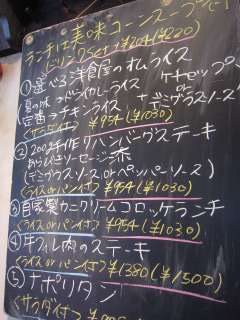 ランチは美味コーンスープ付
ドリンクSet +¥204(¥220)
①選べる洋食屋のオムライス
夏の味→ドライカレーライス ケチャップ
定番→チキンライス + or デミグラスソース
(サラダ付) ¥954(¥1030)
②200g手作りハンバーグステーキ
あらびきソーセージ添
(デミグラスソース or ペッパーソース)
(ライス or パン付) ¥954(¥1030)
③自家製カニクリームコロッケランチ
(ライス or パン付) ¥954(¥1030)
④牛フィレ肉のステーキ
(ライス or パン付) ¥1380(¥1500)
⑤ナポリタン
(サラダ付)